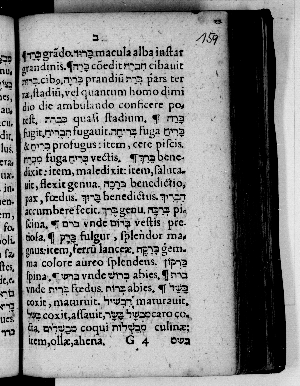 159
ב
¶ בָּרַד grãdo. בָּרוֹד macula alba instar
grandinis. ¶ בָּרָה cõedit הִבְרָה cibauit
בָּרוּת cibꝰ, בִּרְיָה prandiũ כִּבְרָה pars ter
ræ, stadiũ, vel quantum homo dimi
dio die ambulando conficere po-
test. כִּבְרַת quasi stadium. ¶ בָּרַח
fugit. הִבְרִיחַ fugauit. בְּרִיחָה fuga בָּרִיחַ
& profugus: item, cete piscis.
מִבְרָח fuga בְּרִיחַ vectis. ¶ בָּרַךְ bene-
dixit: item, maledixit: item, saluta-
uit, flexit genua. בְּרָכָה benedictio,
pax, fœdus. ¶ בָּרַךְ benedictus. הִבְרִיךְ
accumbere fecit. בֶּרֶךְ genu. בְּרֵכָה pi-
scina. ¶ בָּרַם vnde בְּרוֹמִים vestis pre-
tiosa. ¶ בָּרָק fulgur, splendor ma-
gnus: item, ferrũ lanceæ. בָּרֶקֶת gem-
ma colore aureo splendens.
spina. ¶ בָּרַשׁ vnde בְּרוֹשׁ abies. ¶
vnde בְּרִית fœdus. בְּרוֹת abies. ¶ בָּשַׁל
coxit, maturuit. הִבְשִׁיל maturauit.
בִּשֵּׁל coxit, assauit, בָּשֵׁל caro co-
cta מְבַשְּׁלִים coqui מְבַשְּׁלוֹת culinæ:
item, ollæ, ahena. G 4 בשם